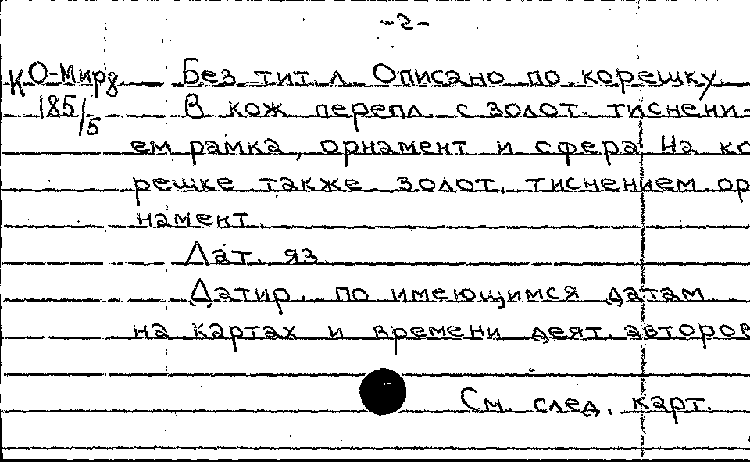 -2-
КО-Мирд Без тит л. Описано по корешку
185/5 В кож перепл. с золот. тиснени-
ем рамка, орнамент и сфера На ко
решке также золот. тиснением ор
намент.
Лат. яз.
Датир. по имеющимся датам
на картах и времени деят. авторов
См. след. карт.